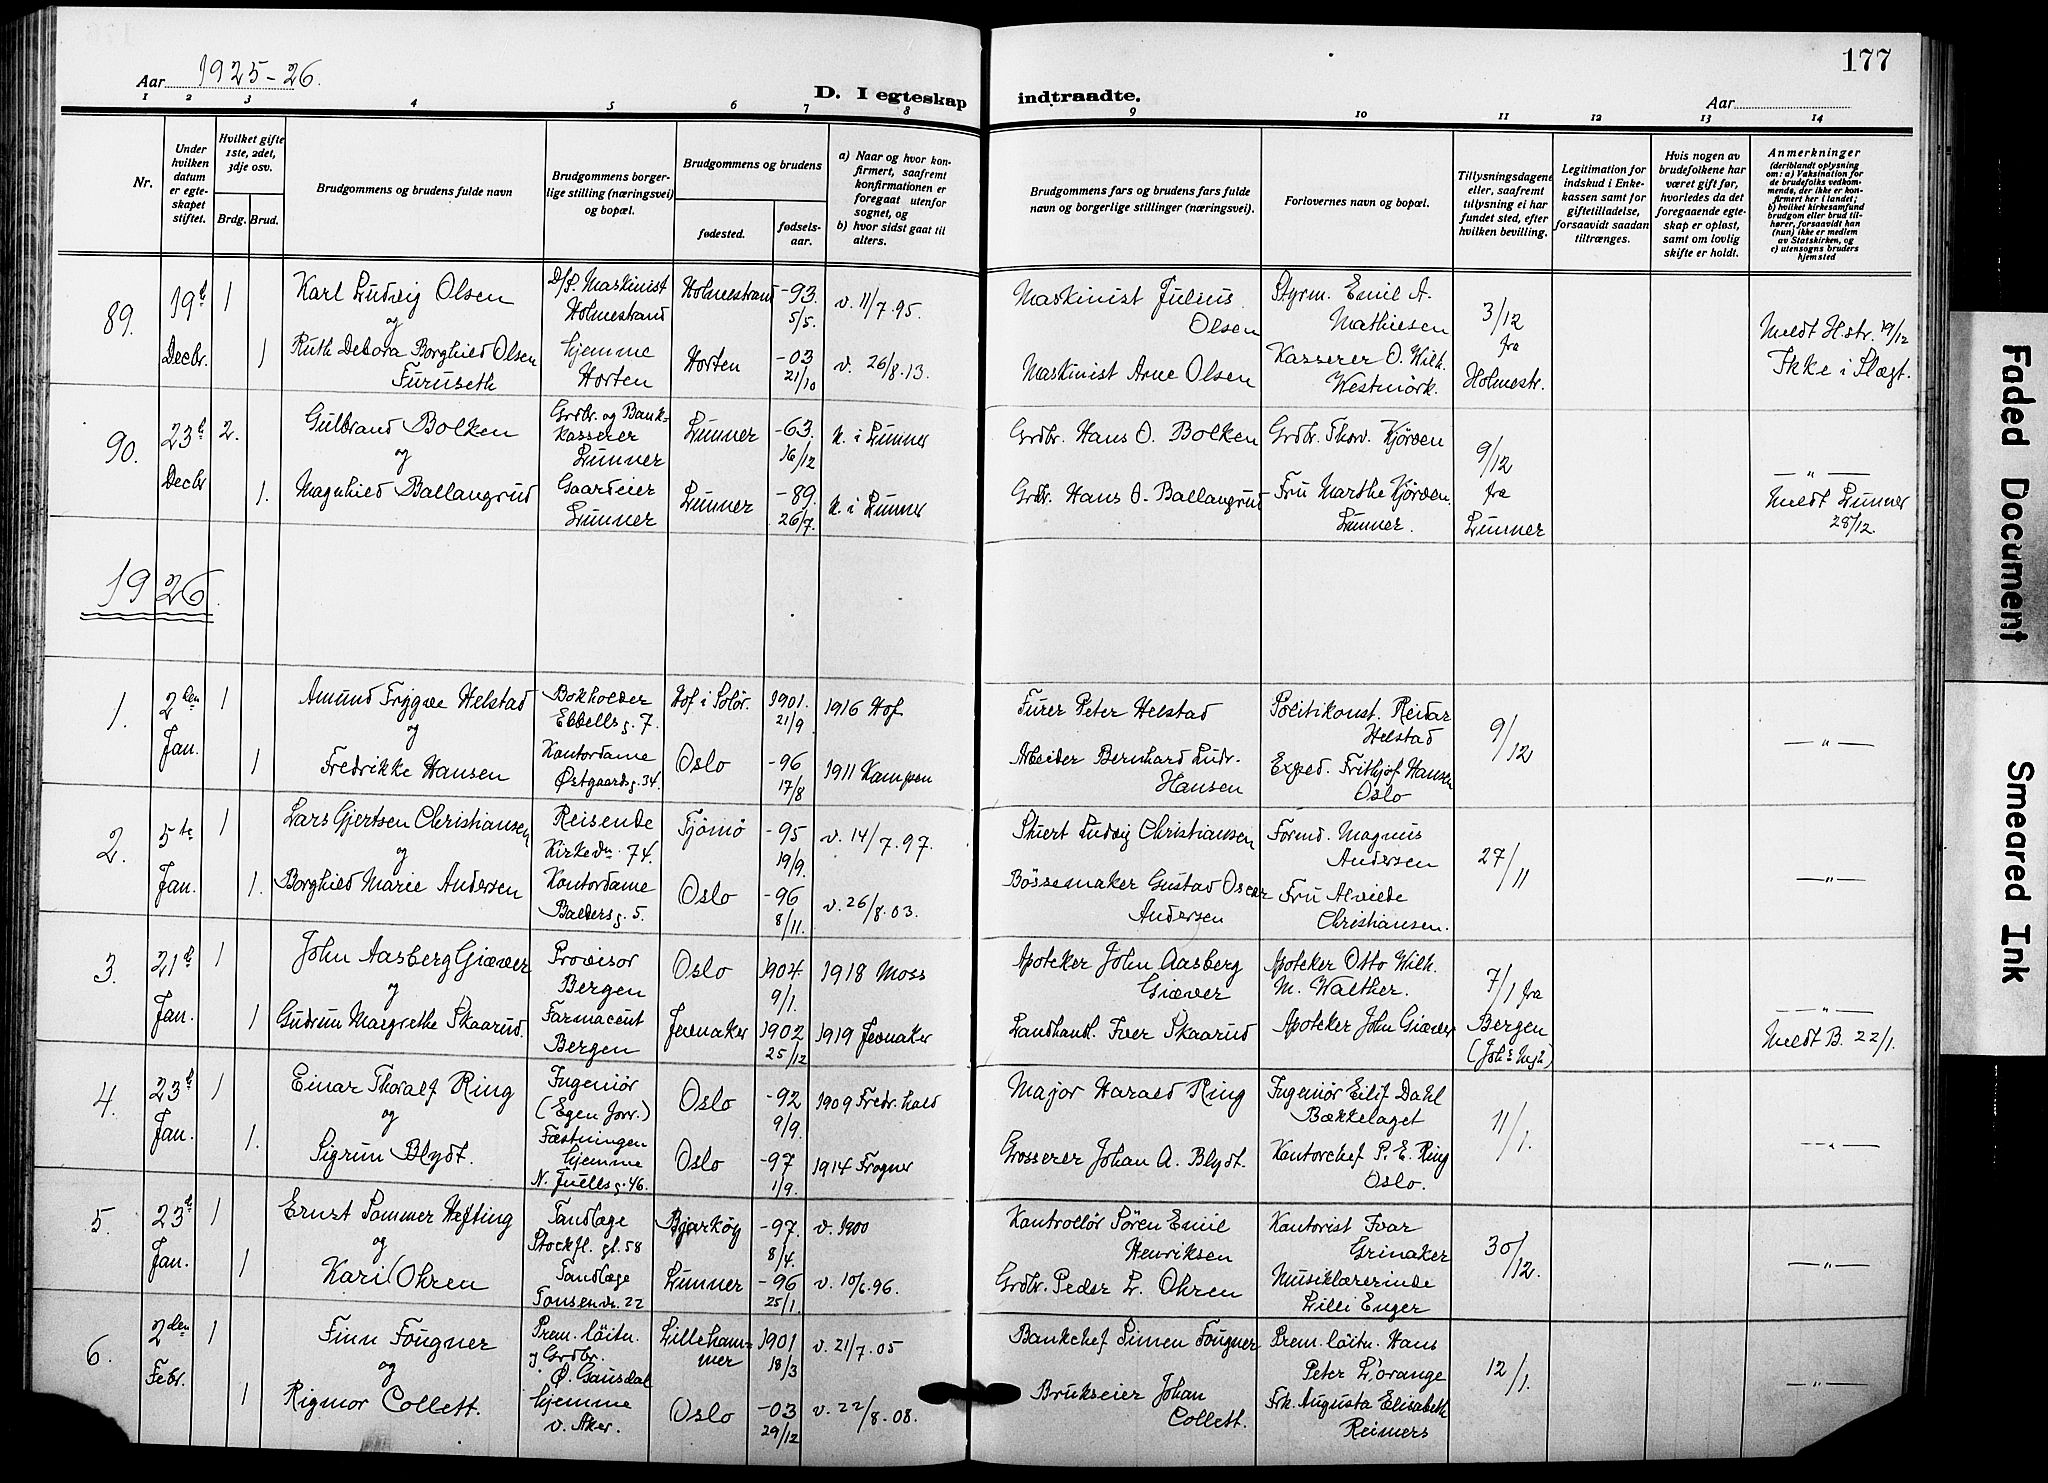 177
Aar 1925-26.
D. I egteskap indtraadte.
Aar
1 2 3 4 5 6 7 8 9 10 11 12 13 14
Nr.
Under hvilken datum er egteskapet stiftet.
Hvilket gifte 1ste, 2det, 3dje osv.
Brdg. Brud.
Brudgommens og brudens fulde navn
Brudgommens borgerlige stilling (næringsvei) og bopæl.
Brudgommens og brudens
fødested.
fødselsaar.
a) Naar og hvor konfirmert, saafremt konfirmationen er foregaat utenfor sognet, og
b) hvor sidst gaat til alters.
Brudgommens fars og brudens fars fulde navn og borgerlige stillinger (næringsvei).
Forlovernes navn og bopæl.
Tillysningsdagene eller, saafremt tillysning ei har fundet sted, efter hvilken bevilling.
Legitimation for indskud i Enkekassen samt for giftetilladelse, forsaavidt saadan tiltrænges.
Hvis nogen av brudefolkene har været gift før, hvorledes da det foregaaende egteskap er opløst, samt om lovlig skifte er holdt.
Anmerkninger
(deriblandt oplysning om: a) Vaksination for de brudefolks vedkommende, der ikke er konfirmert her i landet; b) hvilket kirkesamfund brudgom eller brud tilhører, forsaavidt han (hun) ikke er medlem av Statskirken, og c) utensogns bruders hjemsted
89. 19d Decbr. 1 Karl Ludvig Olsen D/S. Maskinist Holmestrand Holmestrand -93. 5/5. v. 11/7.95. Maskinist Julius Olsen Styrm. Emil A. Mathiesen 3/12 fra Holmestr. Meldt H.str. 19/12
og
1 Ruth Debora Borghild Olsen Furuseth Hjemme Horten Horten -03 21/10 v. 26/8.13. Maskinist Arne Olsen Kasserer O. Wilh. Westmörk. Ikke i Slægt.
90. 23d Decbr 2. Gulbrand Bolken Grdbr. og Bankkasserer Lunner Lunner -63. 16/12 k. i Lunner Grdbr. Hans O. Bolken Grdbr. Thorv. Kjörven 9/12 fra Lunner — „ —
og
1. Magnhild Ballangrud Gaardeier Lunner Lunner -89. 26/7. k. i Lunner Grdbr. Hans O. Ballangrud Fru Marthe Kjörven Lunner. Meldt Lunner 28/12.
1926.
1. 2den Jan. 1 Amund Trygve Helstad Bokholder Ebbells g. 7. Hof i Solör. 1901. 21/9 1916 Hof Furer Peter Helstad Politikonst. Reidar Helstad 9/12 — „ —
og
1 Fredrikke Hansen Kontordame Östgaards g. 34. Oslo -96 17/8 1911 Kampen Arbeider Bernhard Ludv. Hansen Exped. Frithjof Hansen Oslo
2. 5te Jan. 1 Lars Gjertsen Christiansen Reisende Kirkevn. 74. Tjömö -95 19/9. v. 14/7.97. Sivert Ludvig Christiansen Formd. Magnus Andersen 27/11 — „ —
og
1. Borghild Marie Andersen Kontordame Balders g. 5. Oslo -96 8/11. v. 26/8.03. Bössemaker Gustav Oscar Andersen Fru Alvilde Christiansen.
3. 21d Jan. 1 John Aasberg Giæver Provisor Bergen Oslo 1904. 9/1. 1918 Moss Apoteker John Aasberg Giæver Apoteker Otto Wilh. M. Walther. 7/1 fra Bergen — „ —
og
1 Gudrun Margrethe Skaarud. Farmaceut Bergen Jevnaker 1902 25/12 1919 Jevnaker Landhandl. Iver Skaarud Apoteker John Giæver Meldt B. 22/1.
4. 23d Jan. 1 Einar Thoralf Ring Ingeniör (Egen forr.) Fæstningen Oslo -92 9/9. 1909 Fredr.hald Major Harald Ring Ingeniör Eilif Dahl Bækkelaget 11/1. — „ —
og
1. Sigrun Blydt. Hjemme N. Juells g. 46. Oslo -97 1/9. 1914 Frogner Grosserer Johan A. Blydt. Kontorchef P. E. Ring Oslo.
5. 23d Jan. 1 Ernst Sommer Hefting Tandlæge Stockfl. gt. 58 Bjarköy -97. 8/4. v. 1900 Kontrollör Sören Emil Henriksen Kontorist Ivar Grinaker 30/12. — „ —
og
1 Kari Ohren Tandlæge Tonsenvn. 22 Lunner -96 25/1. v. 10/6.96. Grdbr. Peder L. Ohren Musiklærerinde Lilli Enger
6. 2den Febr. 1 Finn Fougner Prem. löitn. og Grdbr. Ö. Gausdal Lillehammer 1901 18/3 v. 21/7.05 Bankchef Simen Fougner Prem. löitn. Hans Peter L'orange 12/1. — „ —
og
1 Rigmor Collett. Hjemme v. Aker. Oslo -03 29/12 v. 22/8.08. Brukseier Johan Collett. Frk. Augusta Elisabeth Reimers
Faded Document
Smeared Ink